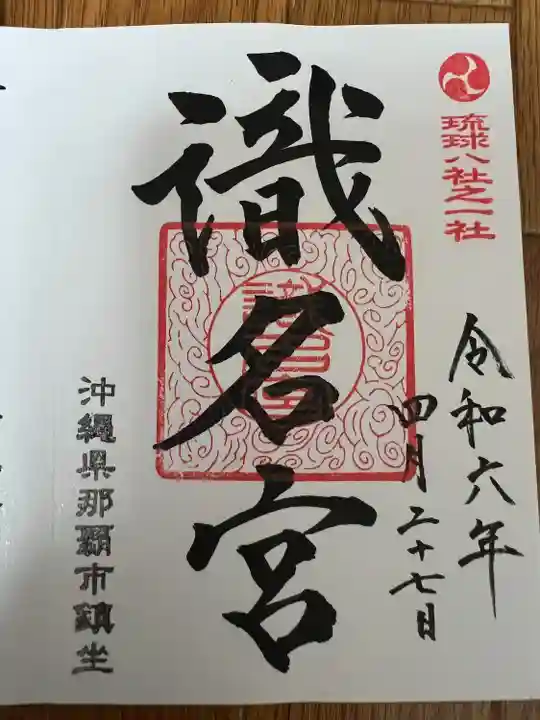 琉球八社之一社
令和六年
四月二十七日
識名宮
沖縄県那覇市鎮坐